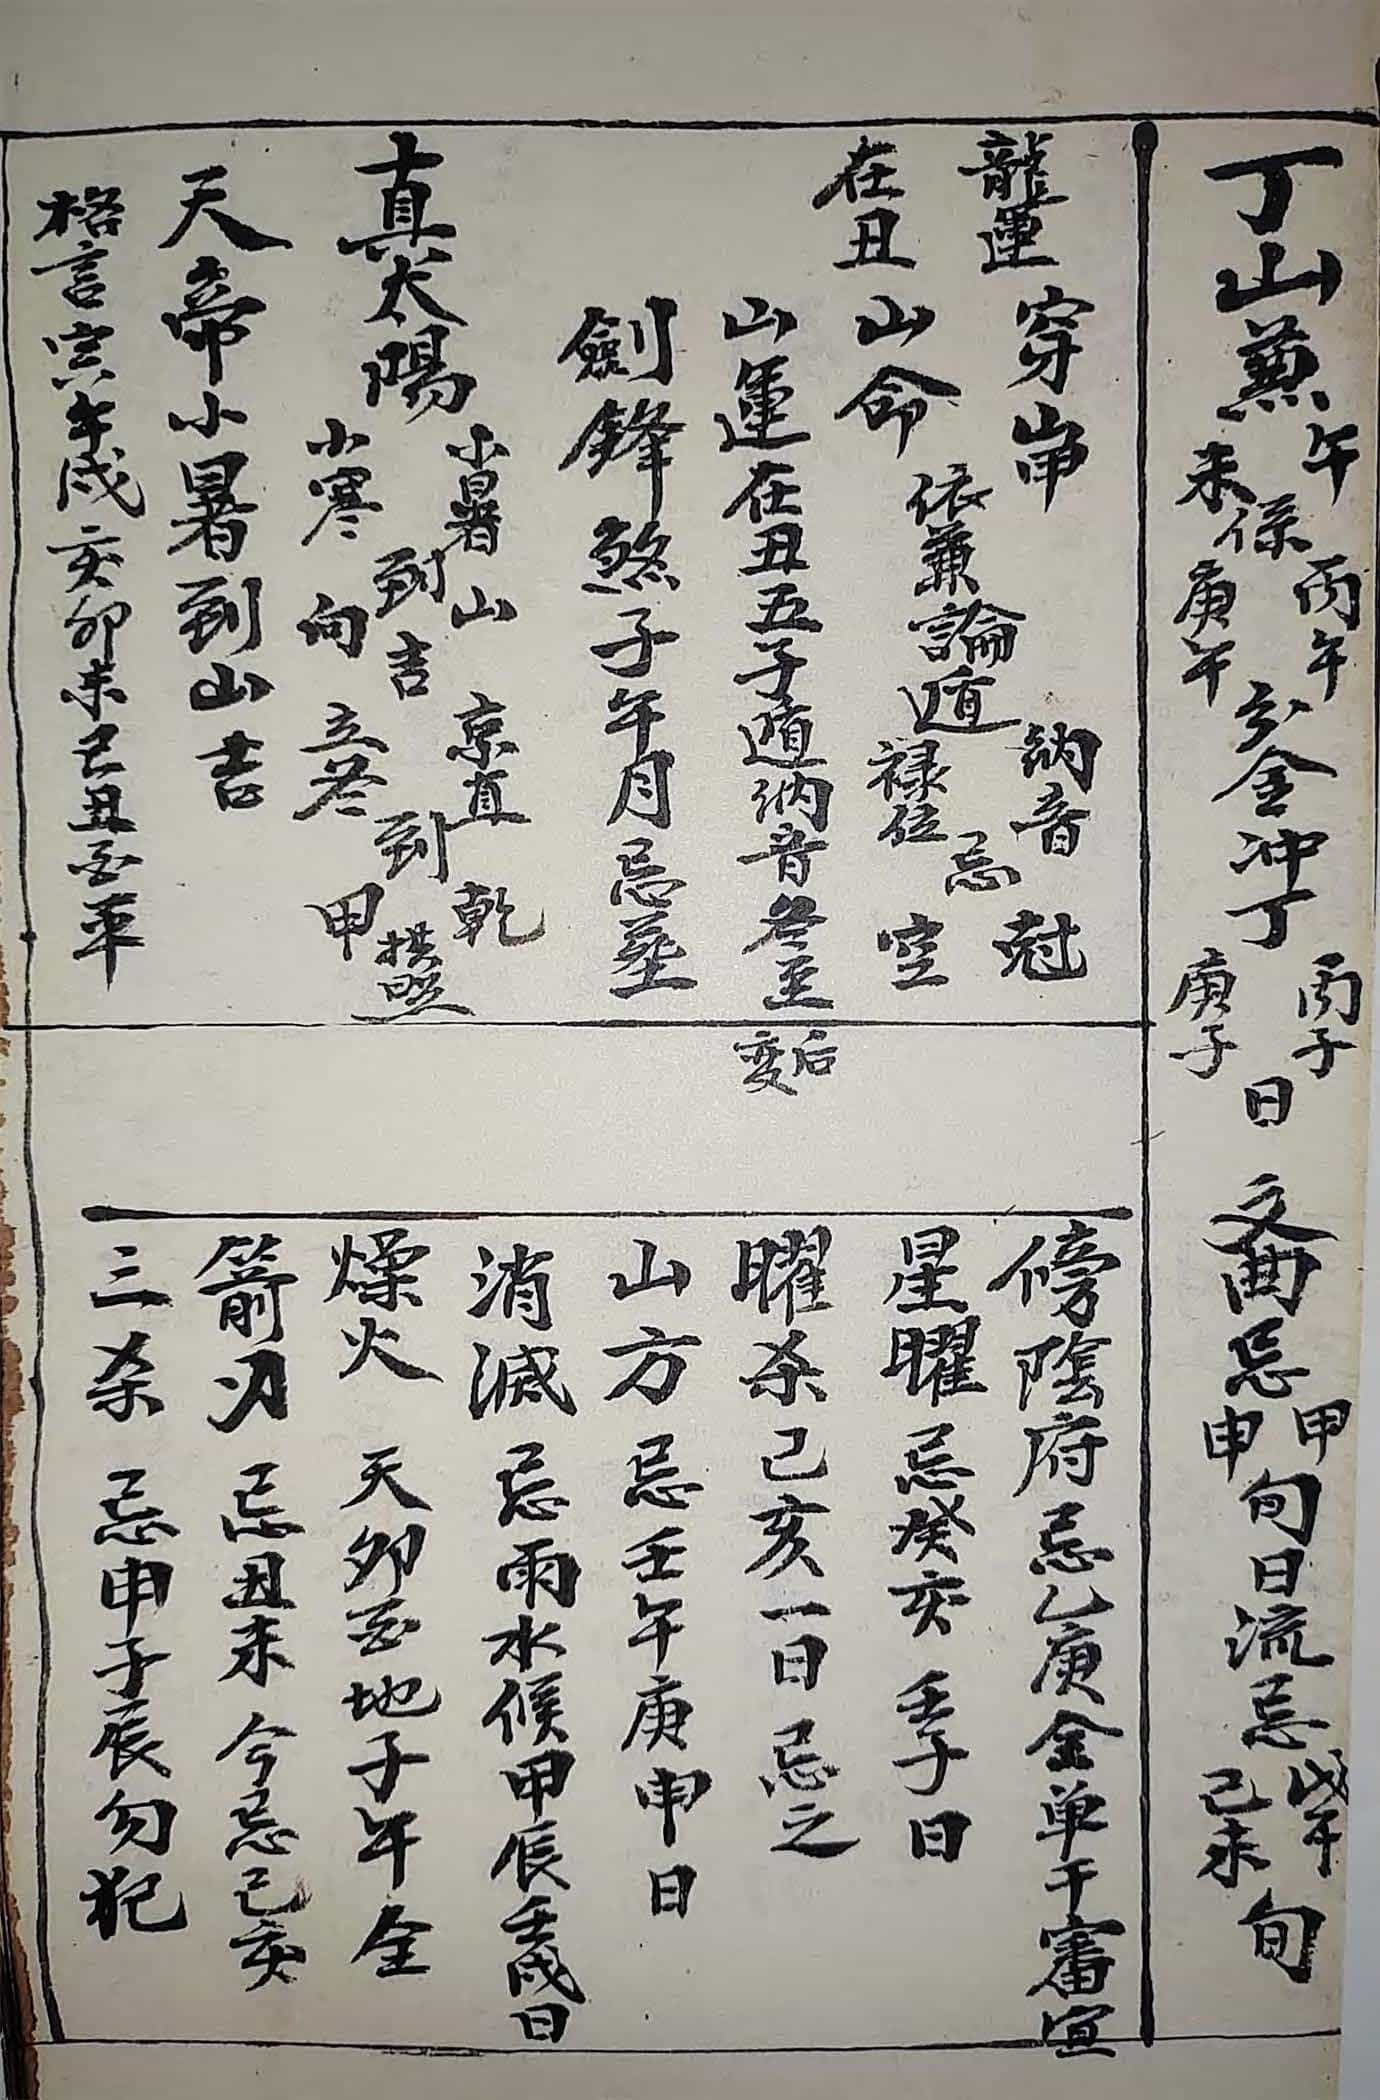 丁山兼午未係丙午庚午分金冲丁丙子庚子日 文曲忌甲申旬日流忌戊午己未旬
龍運在丑
穿山甲
山命依兼論遁納音禄位忌尅空
山運在丑五子遁納音冬至后变
劍鋒煞子午月忌葬
真太陽小暑小寒到山向吉 京直立冬到乾甲拱照
天帝小暑到山吉
格言寅午戌亥卯未巳丑酉平
傍陰府忌乙庚金单干審宜
星曜忌癸亥壬子日
曜杀己亥一日忌之
山方忌壬午庚申日
消滅忌雨水候甲辰壬戌日
燥火天卯酉地子午全
箭刃忌丑未今忌己亥
三杀忌申子辰勿犯